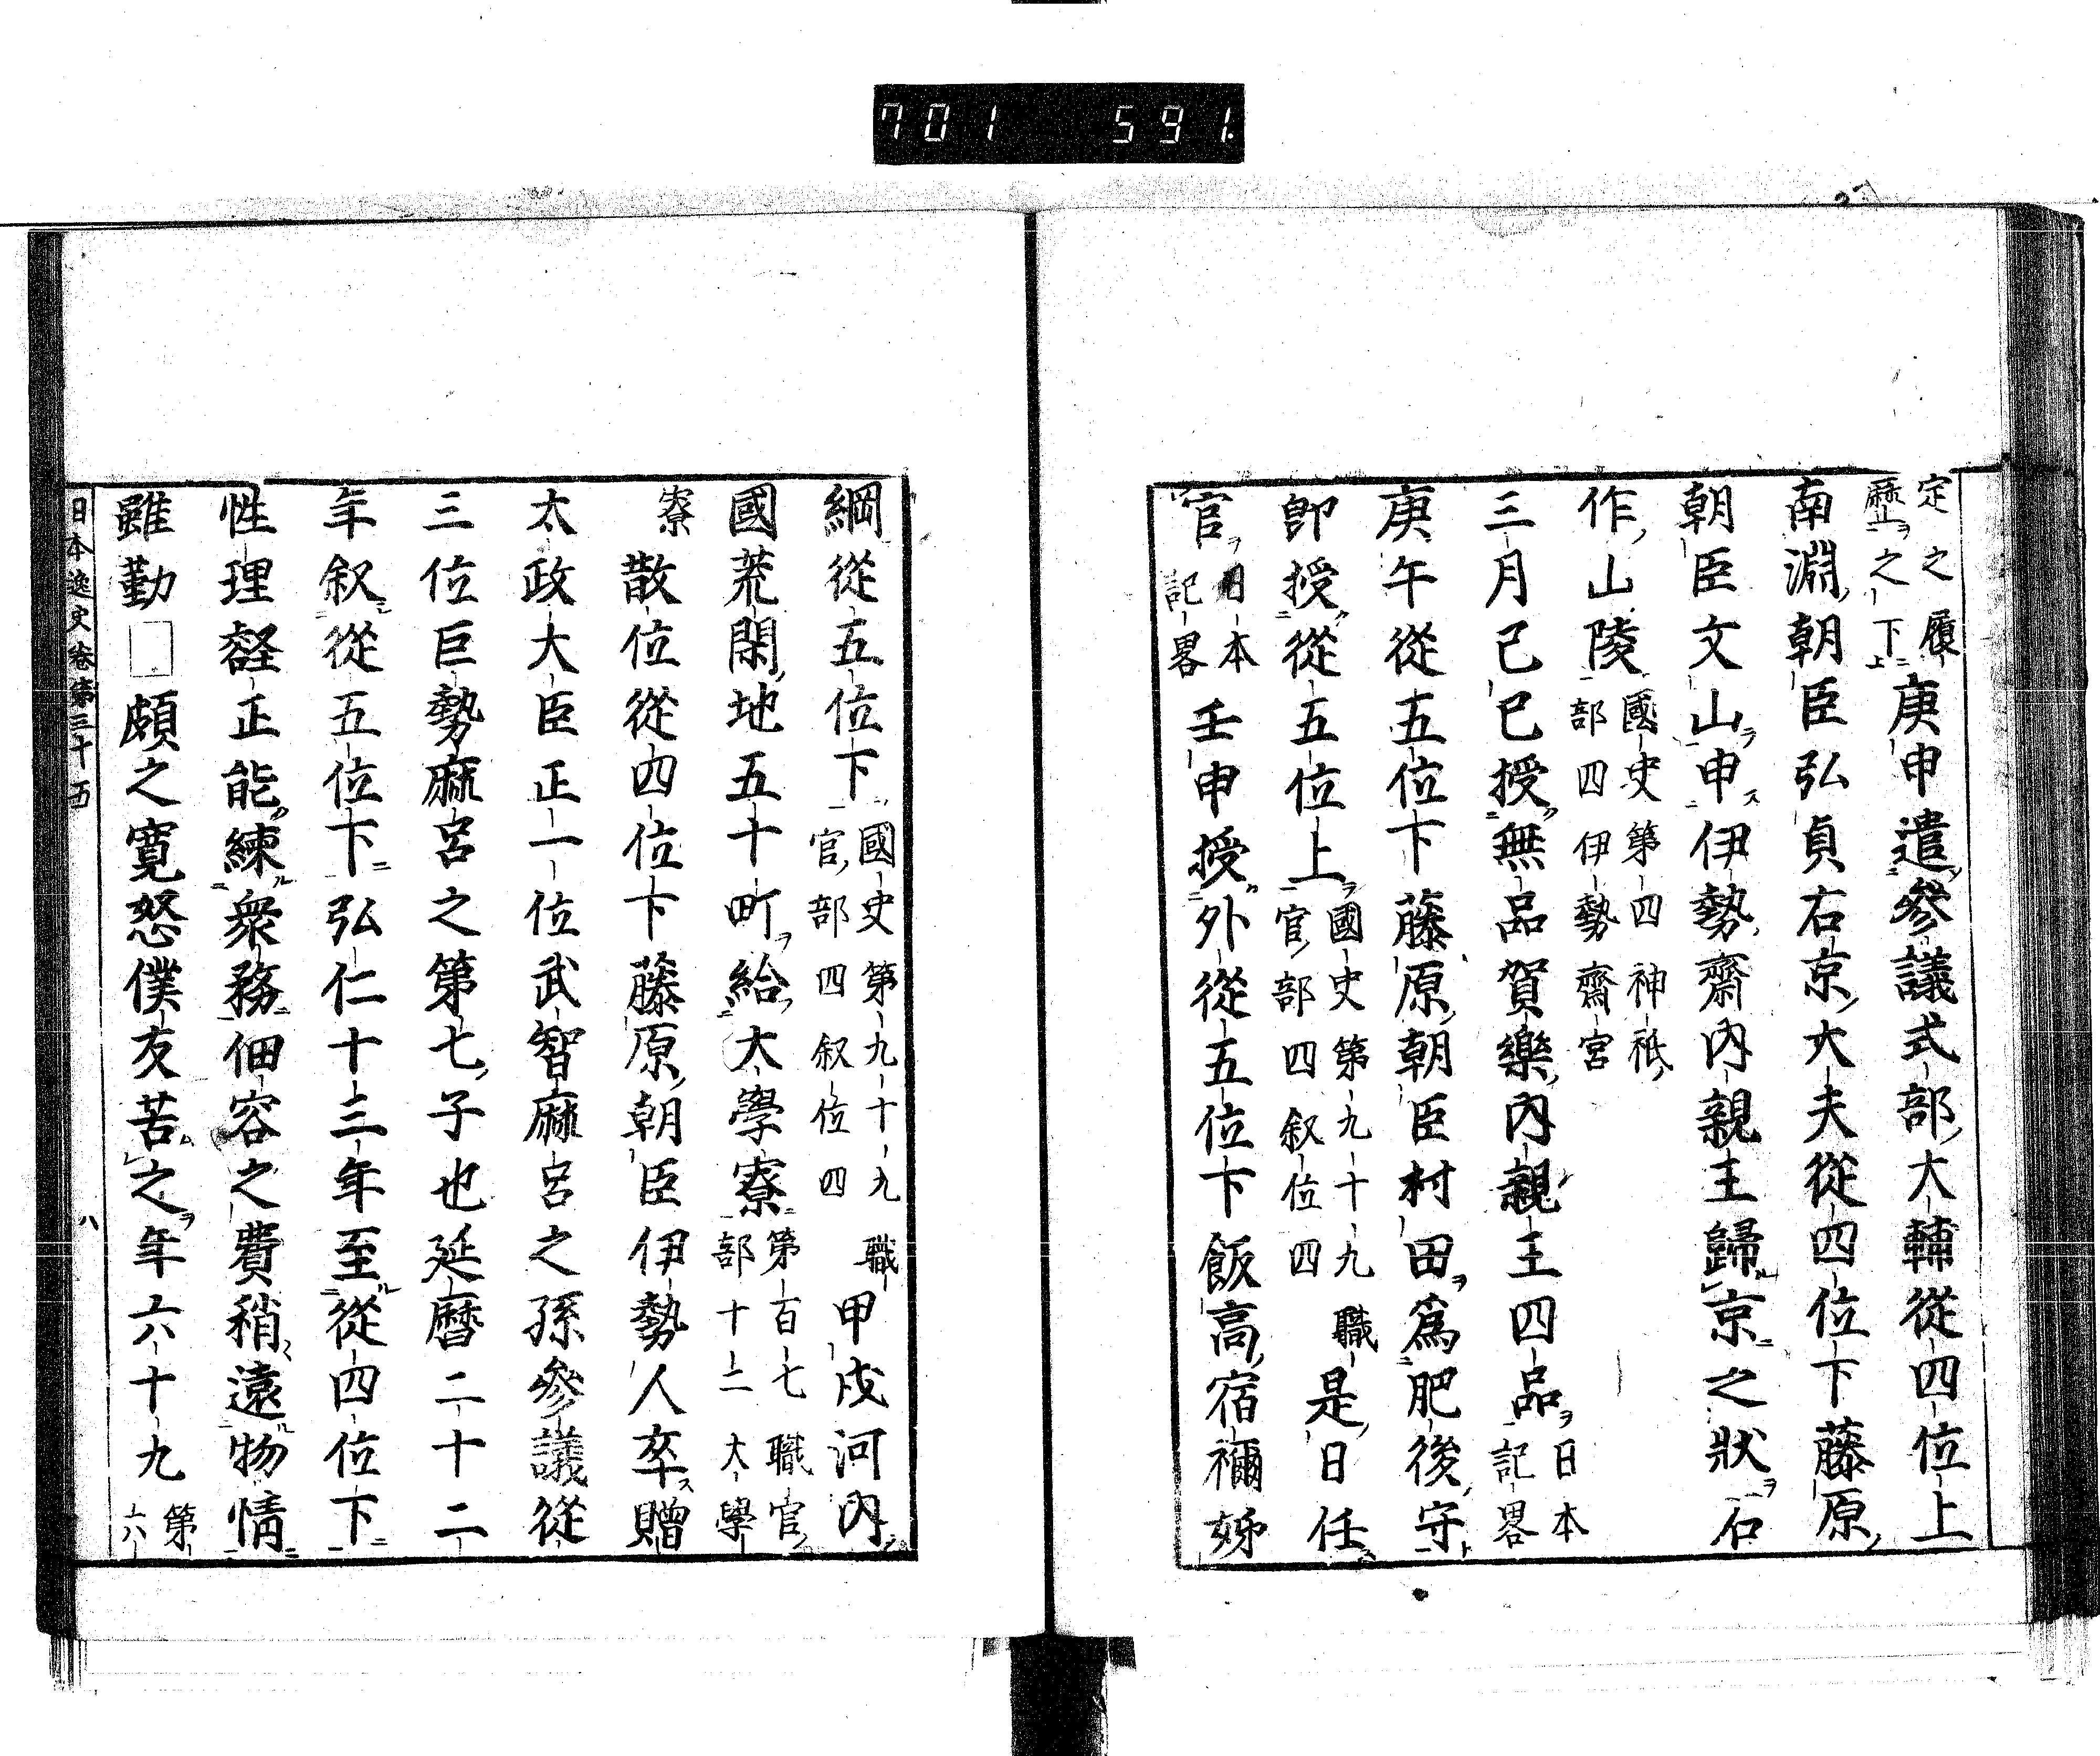 701 591.
定之履
歴之下
庚申遣參議式部大輔從四位上
南淵朝臣弘貞右京大夫從四位下藤原
朝臣文山申伊勢齋内親王歸京之狀石
作山陵
國史第四神祇
部四伊勢齋宮
三月己巳授無品賀樂内親王四品
日本
記畧
庚午從五位下藤原朝臣村田爲肥後守
卽授從五位上
國史第九十九職
官部四叙位四
是日任
官
日本
記畧
壬申授外從五位下飯高宿禰姊
綱從五位下
國史第九十九職
官部四叙位四
甲戌河内
國荒閑地五十町給大學寮
第百七職官
部十二大學
寮
散位從四位下藤原朝臣伊勢人卒贈
太政大臣正一位武智麻呂之孫參議從
三位巨勢麻呂之第七子也延曆二十二
年叙從五位下弘仁十三年至從四位下
性理正能練衆務佃容之費稍遠物情
雖勤□頗之寛怒僕友苦之年六十九
第
六
日本逸史卷第三十四
八